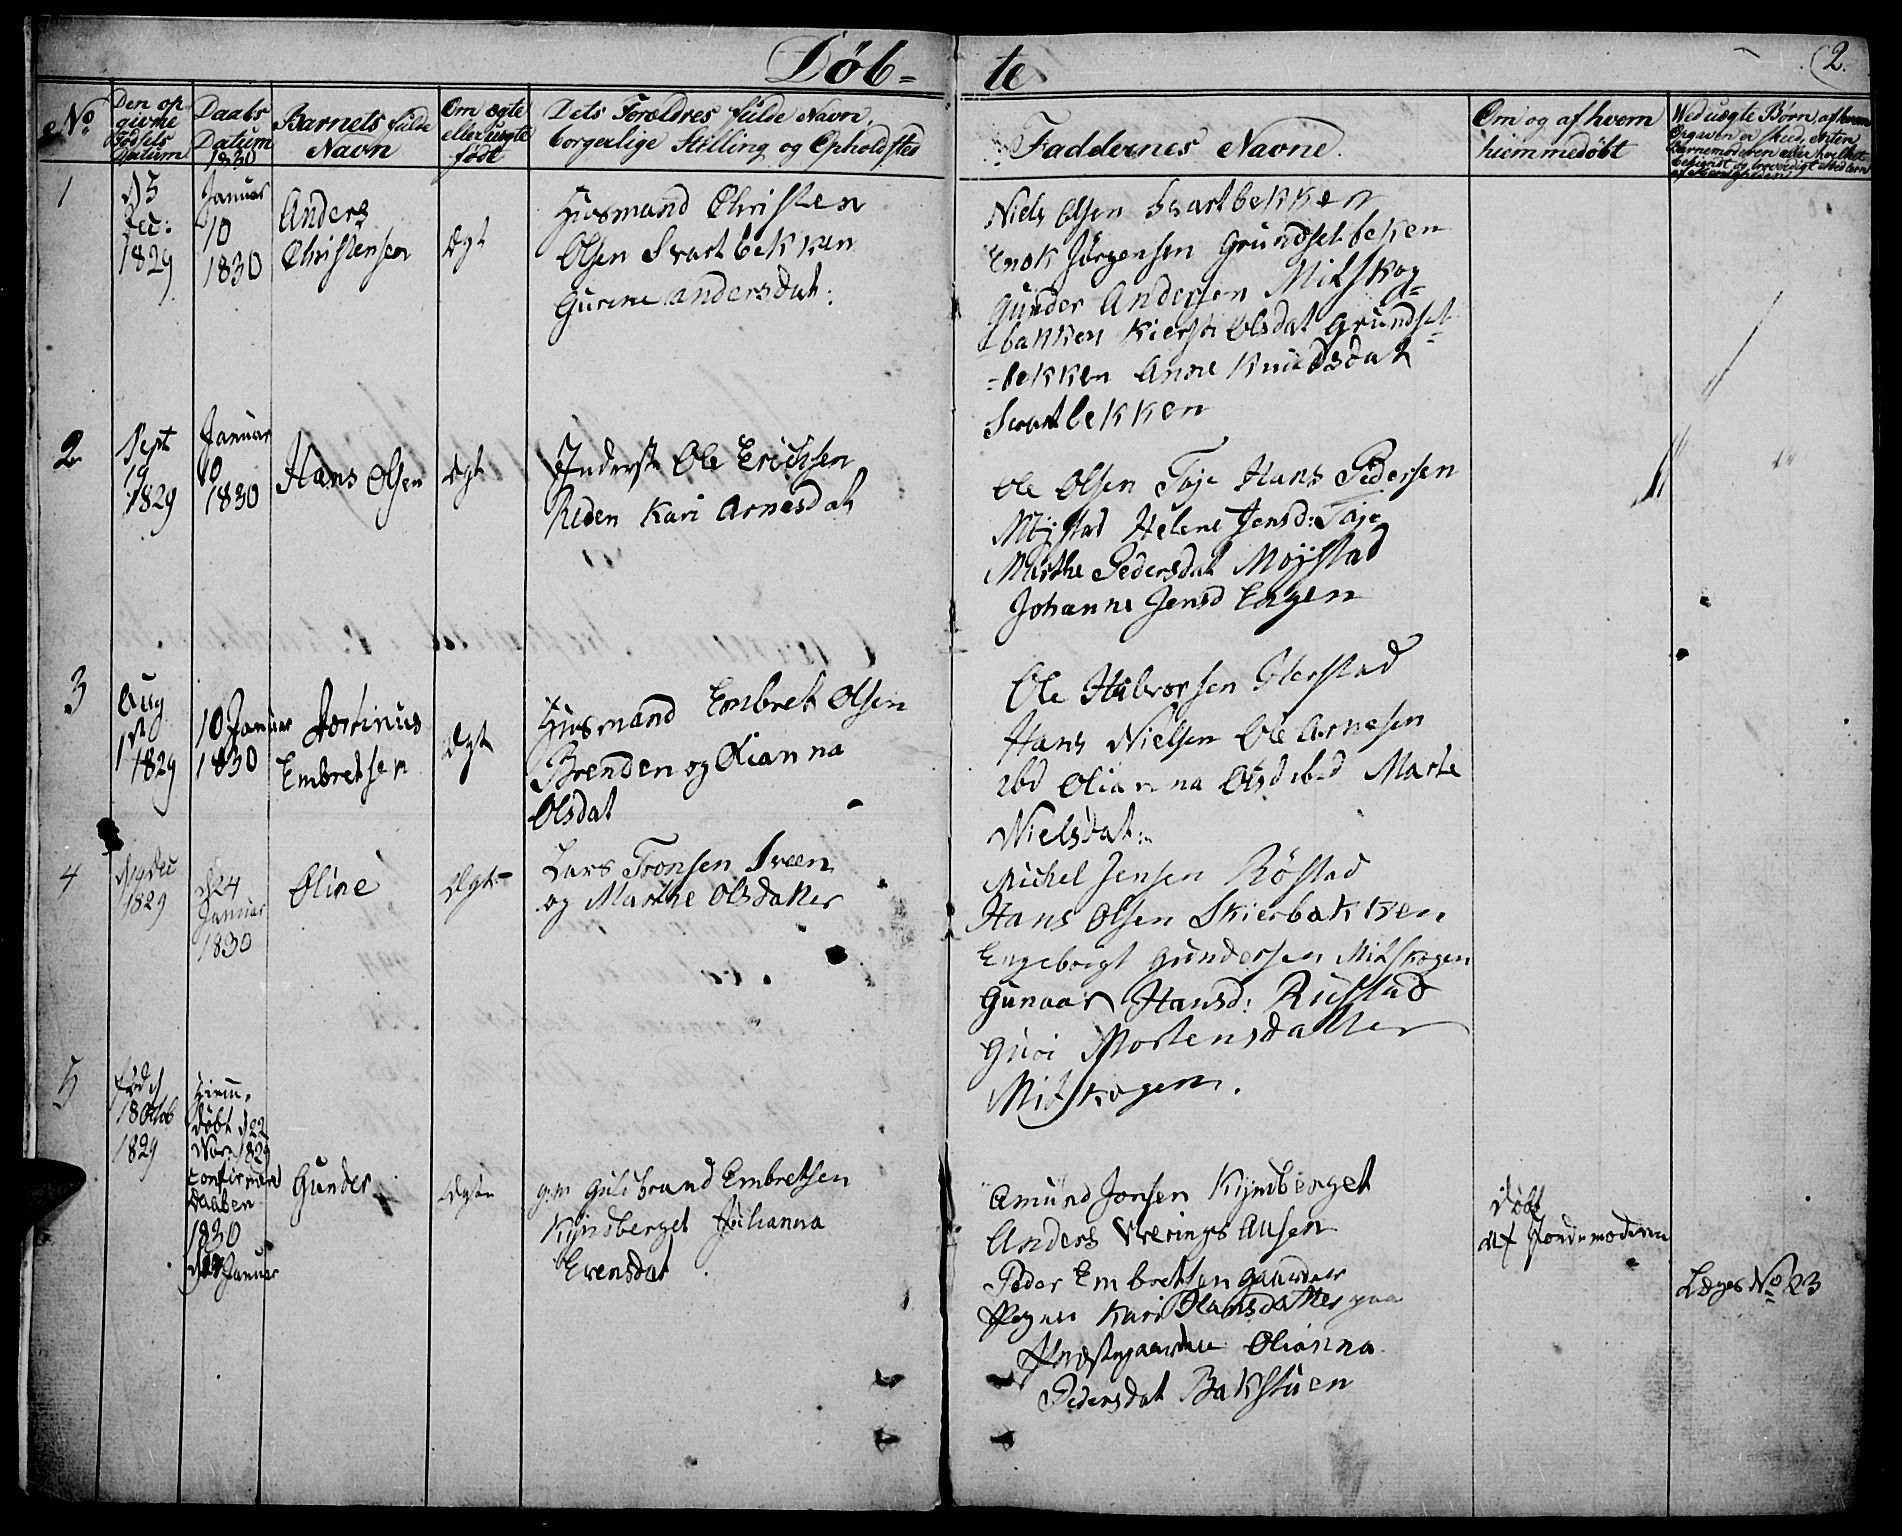 Døb=
te
2.
No
Den op
givne
Fødsels
Datum
Daabs
Datum
1830
Barnets fulde
Navn
Om ægte
eller uægte
født
Dets Forældres fulde Navn,
borgerlige Stilling og Opholdsted
Faddernes Navne.
Om og af hvem
hiemmedøbt
Ved uægte Børn, af hvem
Opgaven er skied, enten
Barnemoderen eller hvilket
bekiendt og troværdigt Medlem
af Menigheden
1
d 5
Dec:
1829
Januar
10
1830
Anders
Christensen
Ægt
Husmand Christen
Olsen Svartbekken
Gurine Andersdat:
Niels Olsen Svartbekken
Enok Jørgensen Grundsetbeken
Gunder Andersen Mitskog=
=bakken Kiersti Olsdat Grundset=
=bekken Anne Knudsdat
Svartbekken
2
Sept
19
1829
Januar
10
1830
Hans Olsen
Ægt
Inderst Ole Erichsen
Reden Kari Arnesdat
Ole Olsen Toje Hans Pedersen
Møystad Helene Jensd: Toje
Marthe Pedersdat Moystad
Johanne Jensd Engen
3
Aug
1829
10 Januar
1830
Embretsen
Ægt
Husmand Embret Olsen
Brenden og Olianna
Olsdat
Ole Halvorsen
Hans Nielsen Ole Arnesen
ibd Olianna Olsd ibd Marte
Nielsdat:
4
Dec
1829
d 24
Januar
1830
Oline
Ægt
Lars Tronsen Sveen
og Marthe Olsdatter
Michel Jensen Røstad
Hans Olsen Skierbakken
Engebregt Gundersen Mitskogen
Gunaar Hansd: Rustad
Guri Mortensdatter
Mitskogen.
5
fød d
18 Octob
1829
Hiem.
døbt d 22
Nov 1829
Confirmered
Daaben
1830
d 24 Januar
Gunder
Ægte
gm Guldbrand Embretsen
Kyndberget Julianna
Evensdat
Amund Jonsen Kyndberget
Anders Væringsausen
Peder Embretsen
Kari Hansdatter paa
Præstegaarden Olianna
Pedersdat Bakstuen
Døbt
af Jordemoderen
Læges No 23